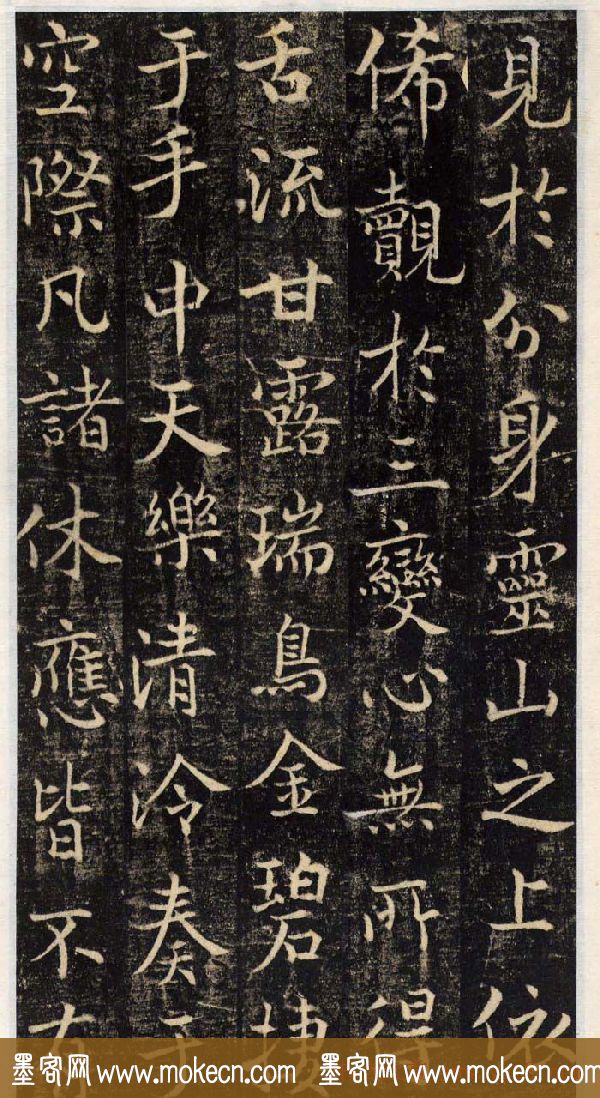 見於分身靈山之上依
俙覿於三變心無所得
舌流甘露瑞鳥金碧捿
于手中天樂清泠奏于
空際凡諸休應皆不有
墨客网 www.mokecn.com 墨客网 www.mokecn.com